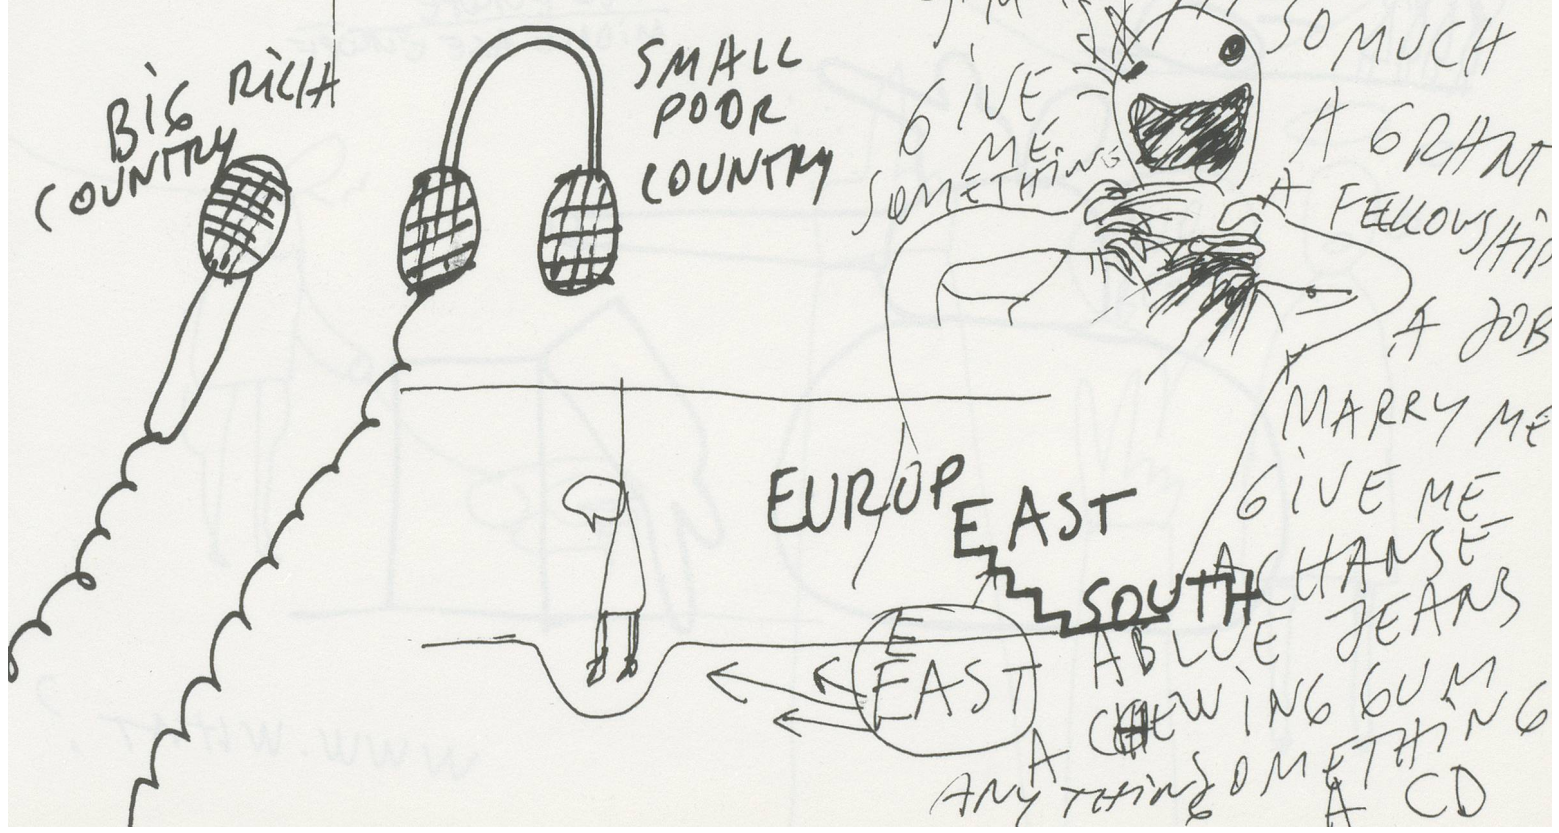 BIG RICH
COUNTRY
SMALL
POOR
COUNTRY
GIVE
ME
SOMETHING
SO MUCH
A GRANT
A FELLOWSHIP
A JOB
MARRY ME
GIVE ME
A CHANSE
A BLUE JEANS
A CHEWING GUM
ANYTHING SOMETHING
A CD
EUROP
EAST
SOUTH
E
EAST
WWW.WHAT?